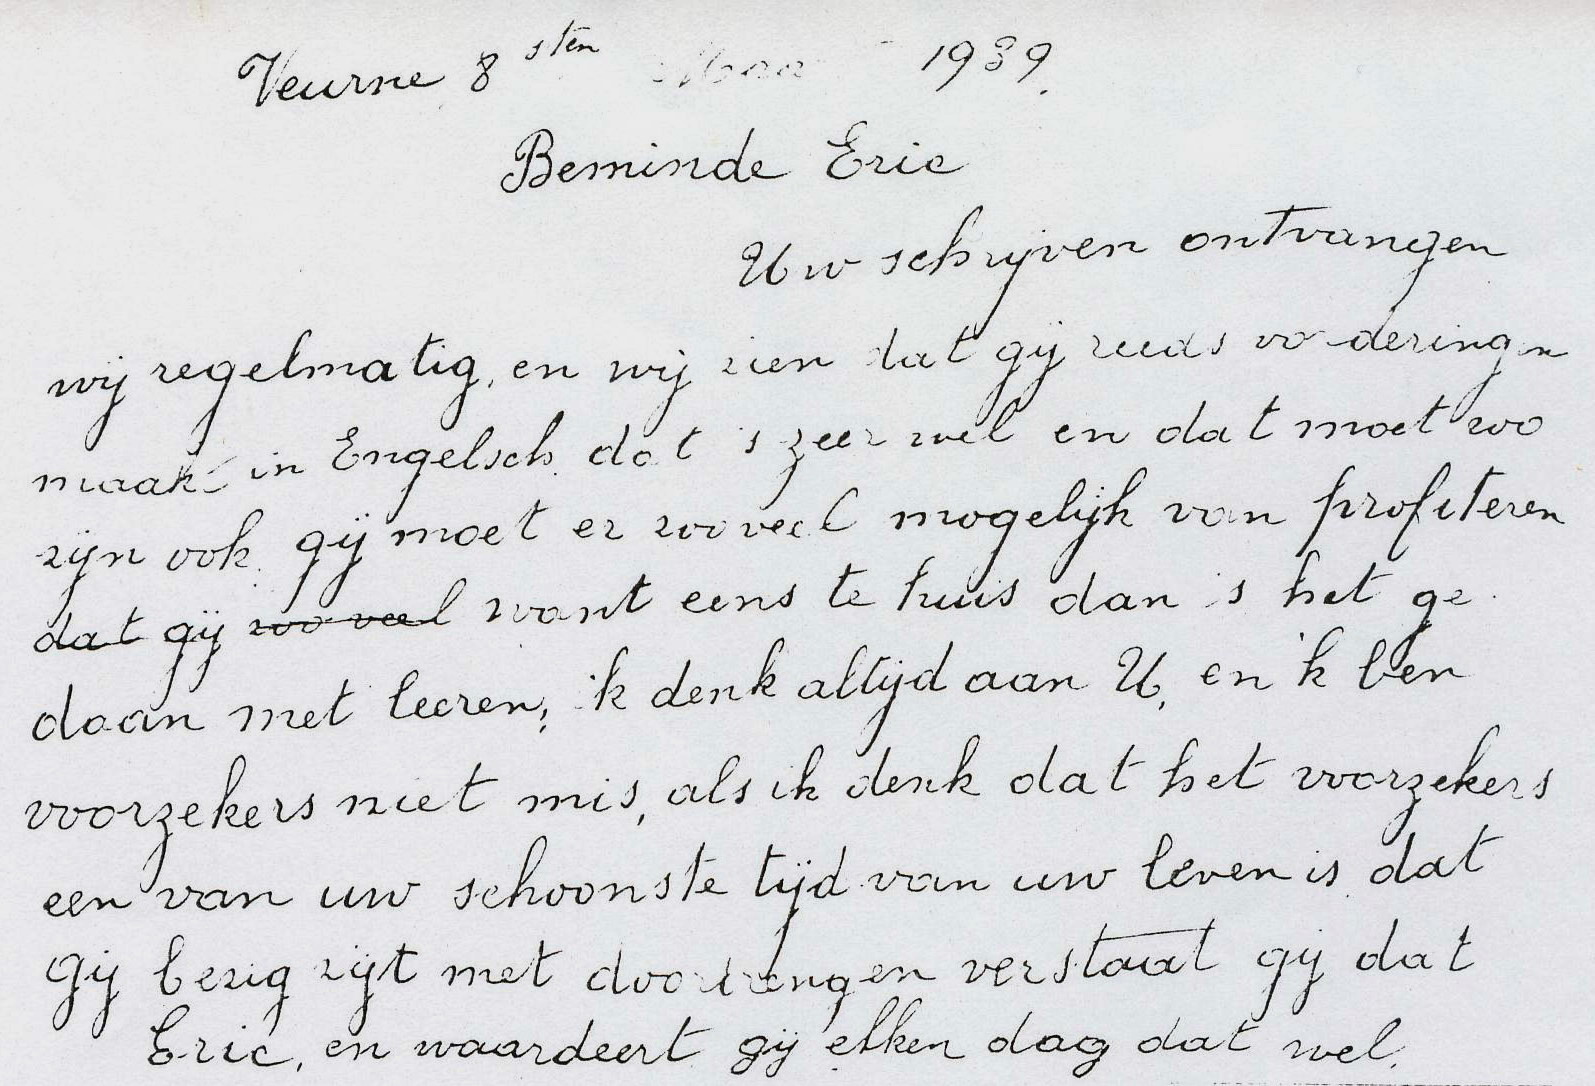 Veurne 8sten 1939.
Beminde Eric
Uw schrijven ontvangen
wij regelmatig, en wij zien dat gij reeds vorderingen
maakt in Engelsch dat 's zeer wel en dat moet zoo
zijn ook. gij moet er zooveel mogelijk van profiteren
dat gij zoo veel want eens te huis dan is het ge
daan met leeren, ik denk altijd aan U, en 'k ben
voorzekers niet mis, als ik denk dat het voorzekers
een van uw schoonste tijd van uw leven is dat
Gij bezig zijt met doorbrengen verstaat gij dat
Eric, en waardeert gij elken dag dat wel.